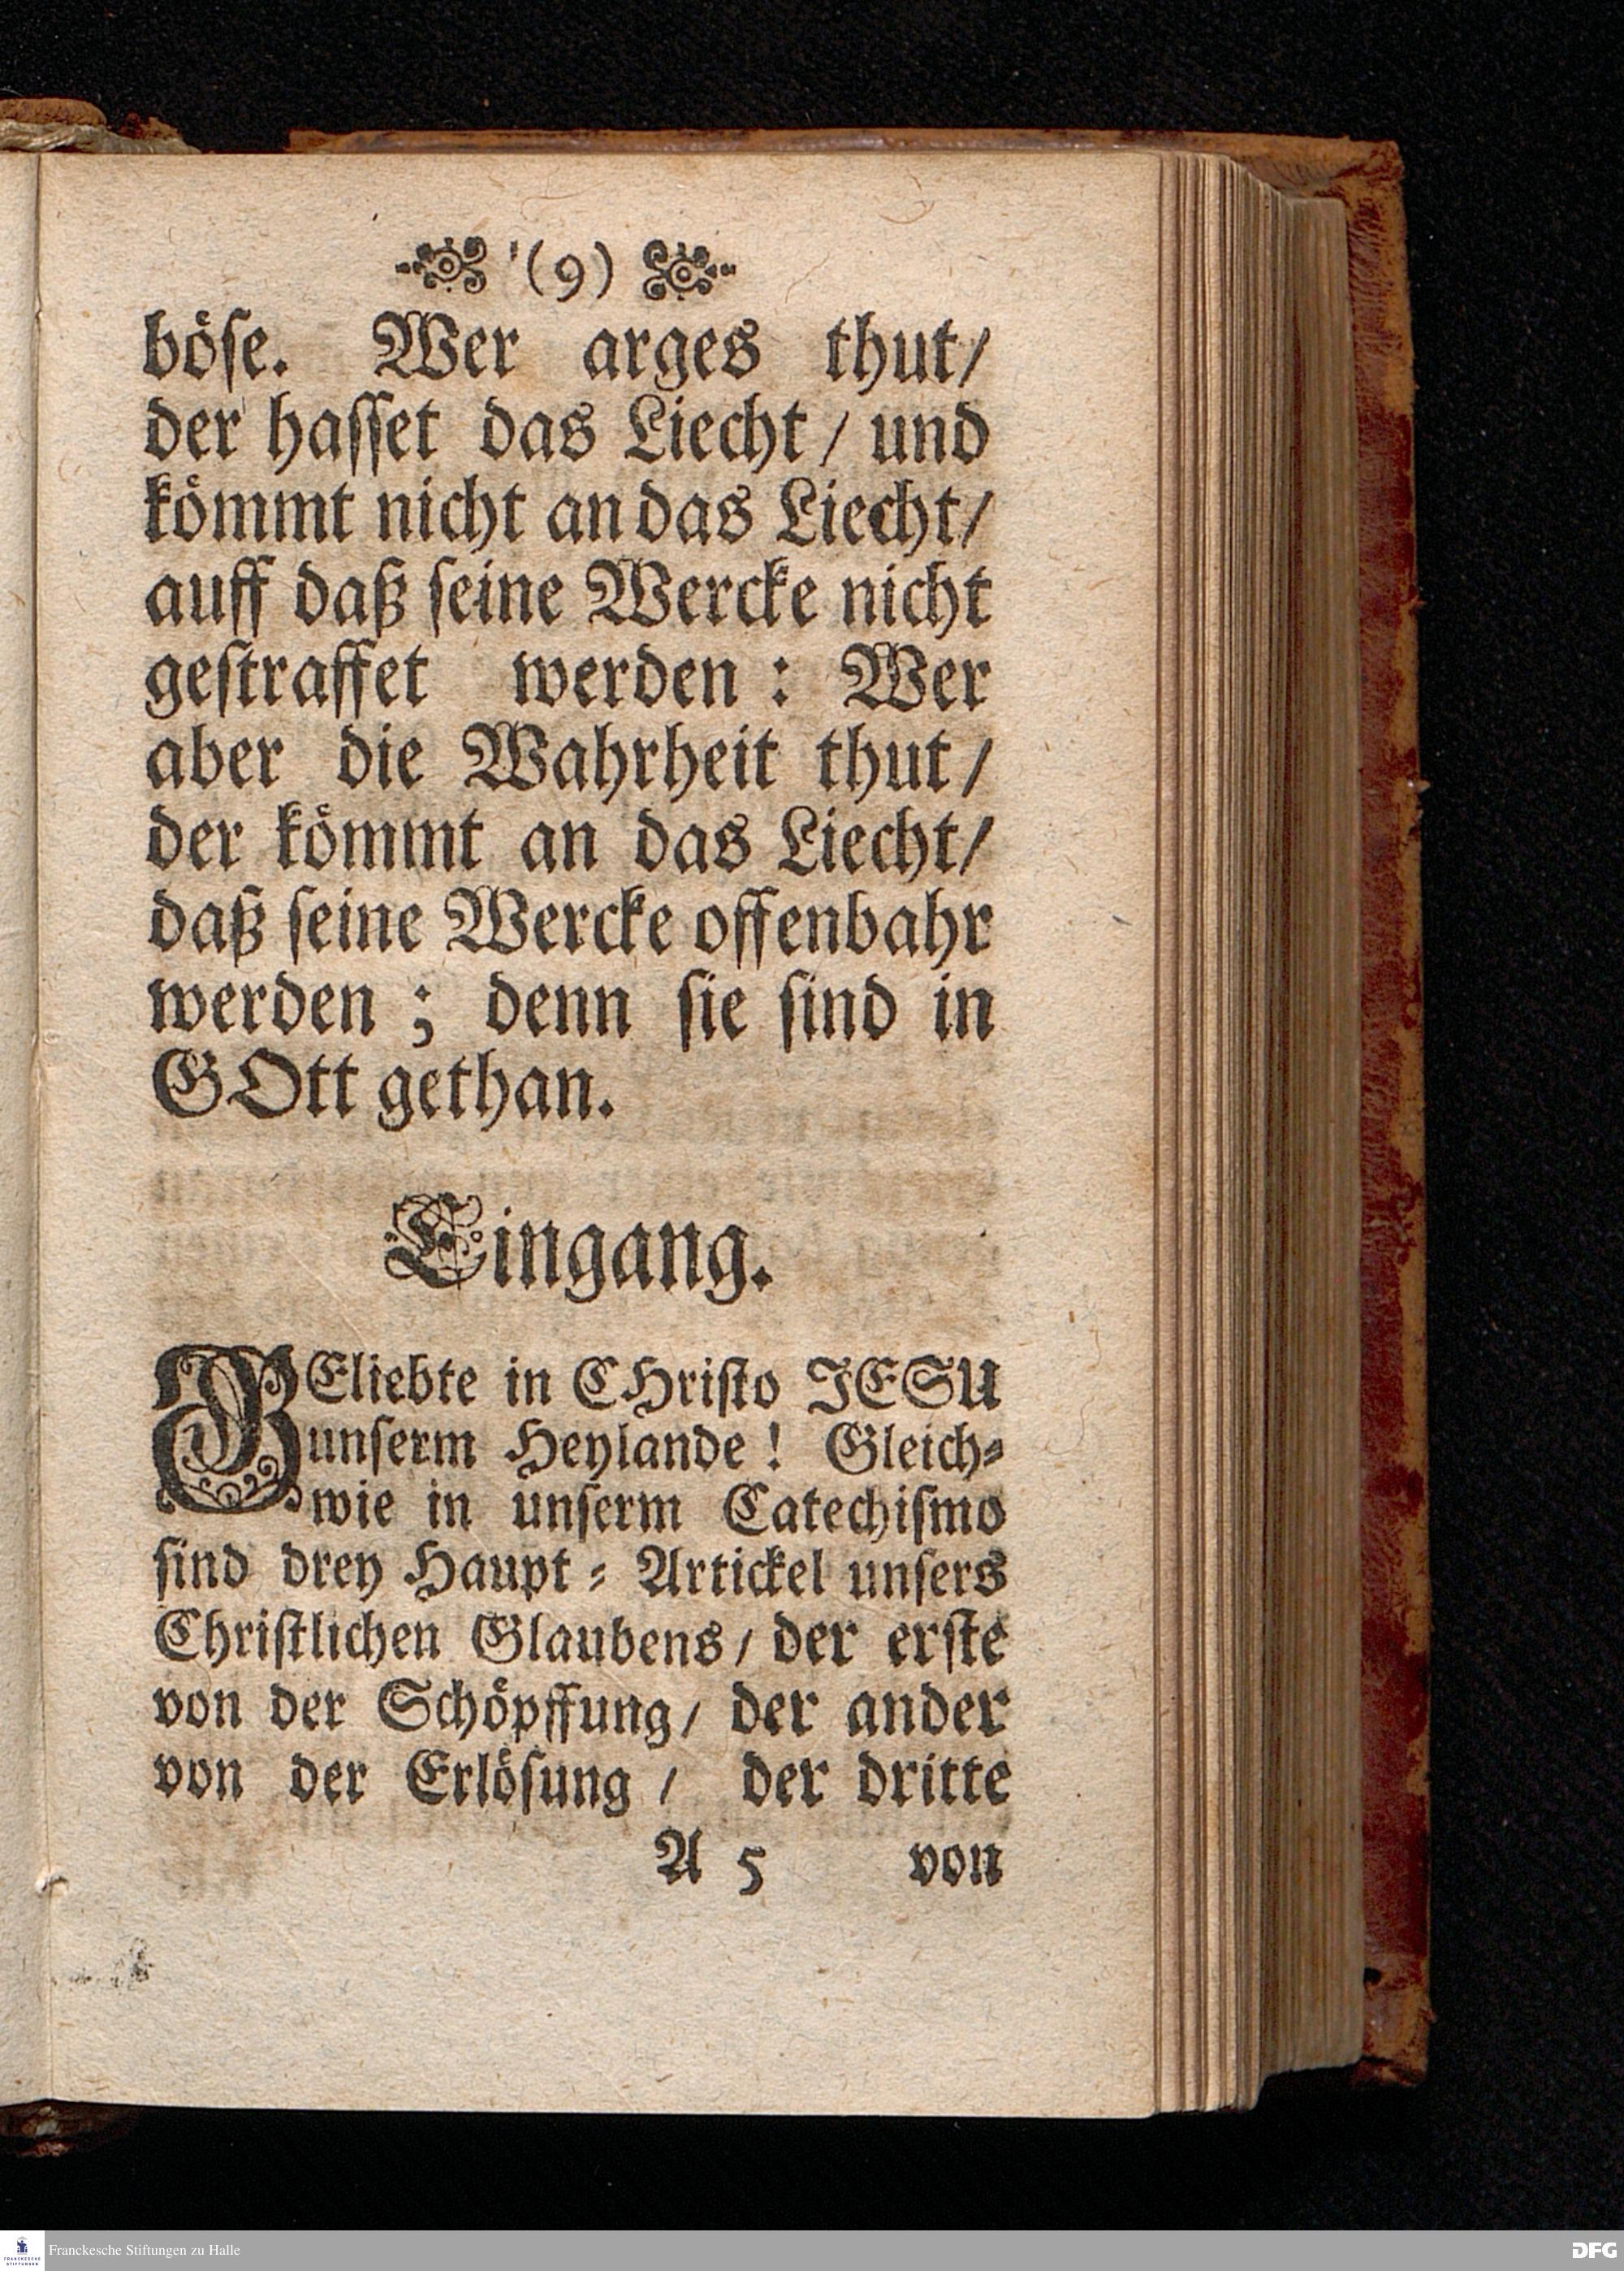 (9)
böse. Wer arges thut/
der hasset das Liecht / und
kömmt nicht an das Liecht/
auff daß seine Wercke nicht
gestraffet werden : Wer
aber die Wahrheit thut /
der kömmt an das Liecht/
daß seine Wercke offenbahr
werden ; denn sie sind in
GOtt gethan.
Eingang.
GEliebte in CHristo JESU
unserm Heylande ! Gleich⸗
wie in unserm Catechismo
sind drey Haupt ⸗ Artickel unsers
Christlichen Glaubens / der erste
von der Schöpffung / der ander
von der Erlösung / der dritte
A 5 von
FRANCKESCHE STIFTUNGEN
Franckesche Stiftungen zu Halle
DFG